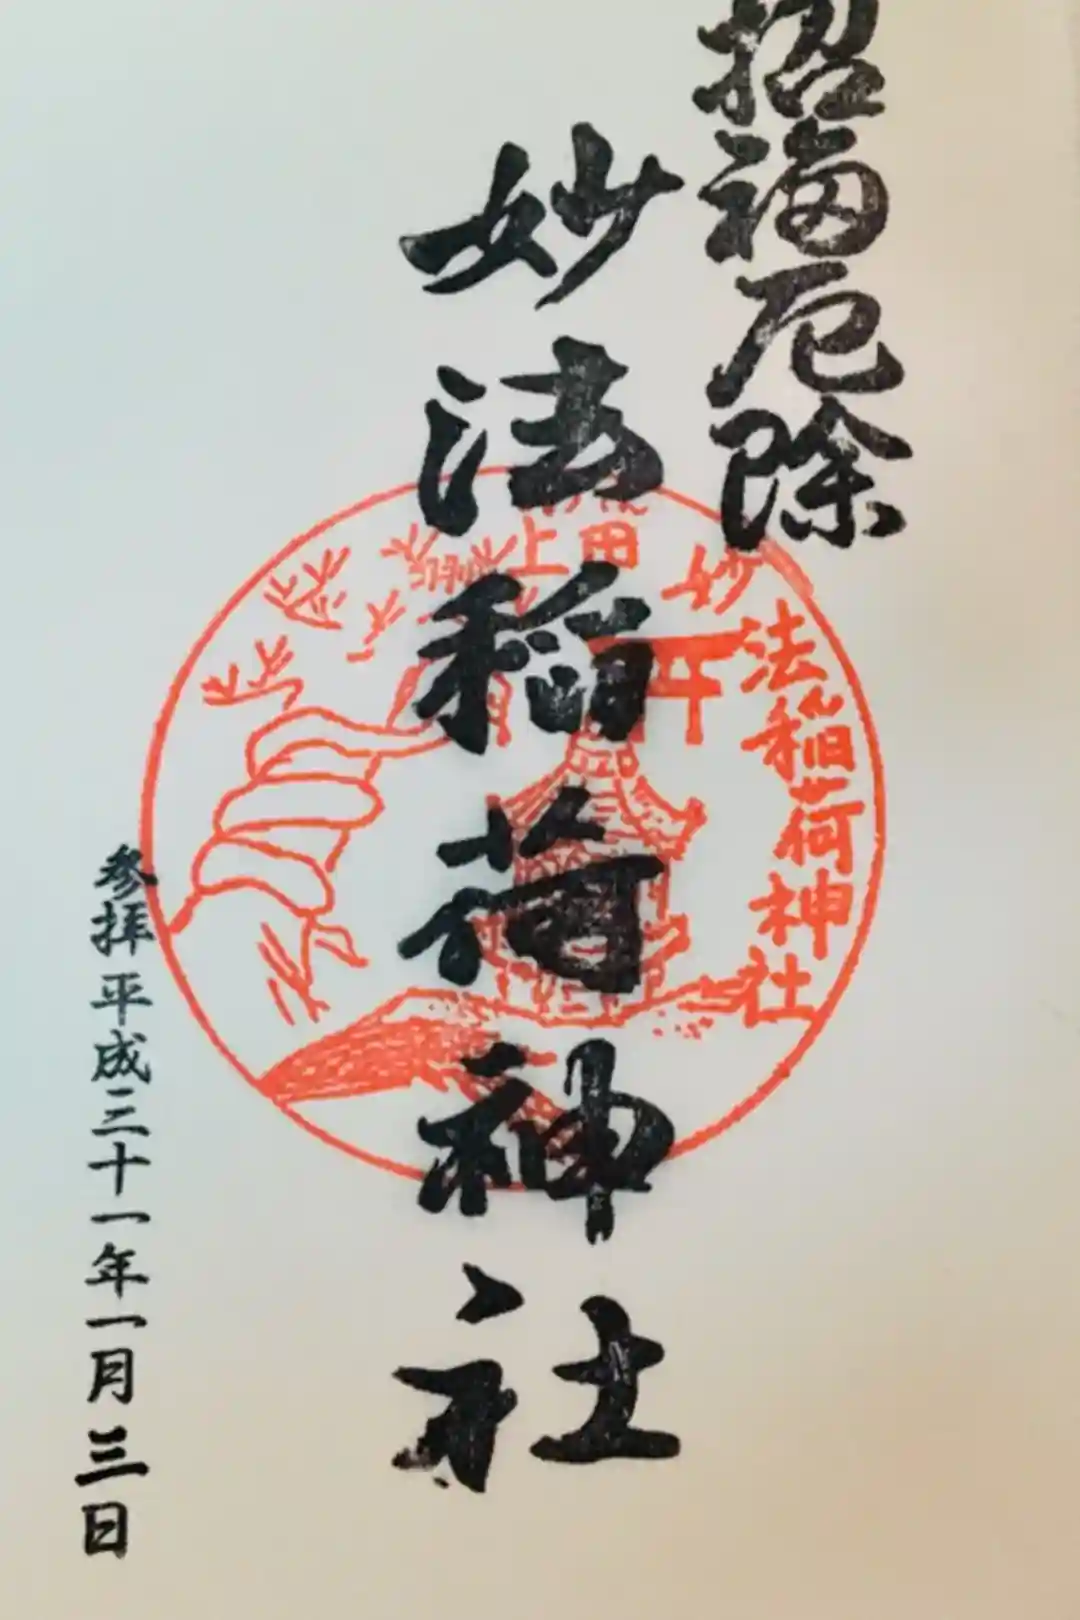 招福厄除
妙法稲荷神社
上田
妙法稲荷神社
参拝 平成三十一年一月三日